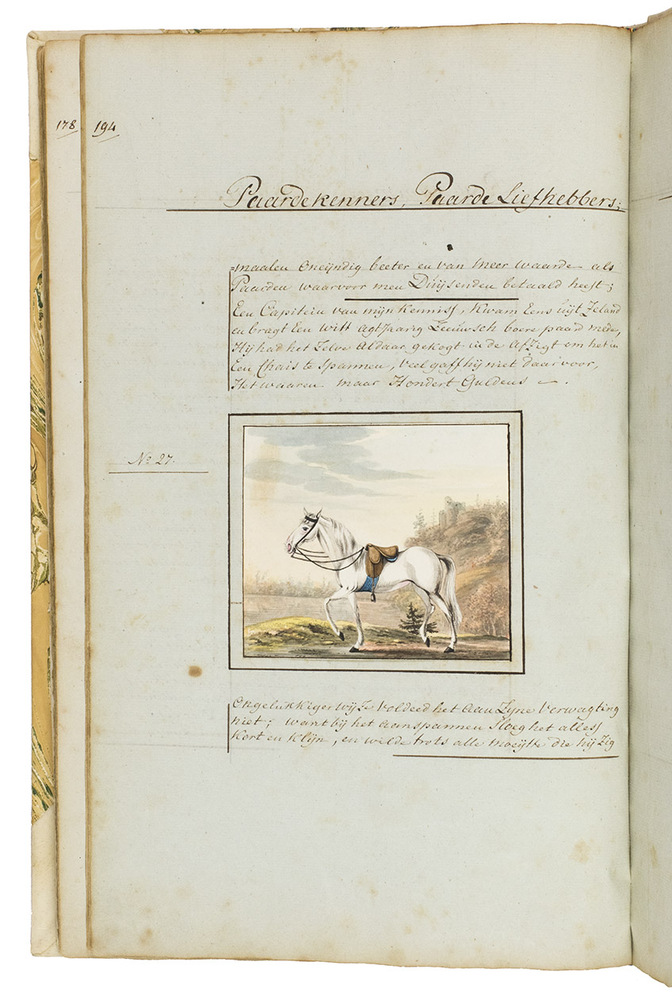 178
194
Paardekenners, Paarde Liefhebbers;
=maalen Oneÿndig beeter en van meer waarde als
Paarden waarvoor men Duÿsenden betaald heeft;
Een Capitein van mÿn kennis, kwam Eens uÿt Zeland
en bragt Een witt agt Jaarig Zeeuwsch boere paard mede,
Hÿ had het Zelve Aldaar gekogt in de afzigt om het in
Een Chais te Spannen, veel gaff hÿ niet daarvoor,
Het waaren maar Hondert Guldens
No 27.
Ongelukkiger wÿze voldeed het Aan Zÿne verwagting
niet; want bÿ het aanspannen Sloeg het alles
kort en klÿn, en wilde trots alle moeÿte die hÿ Zig